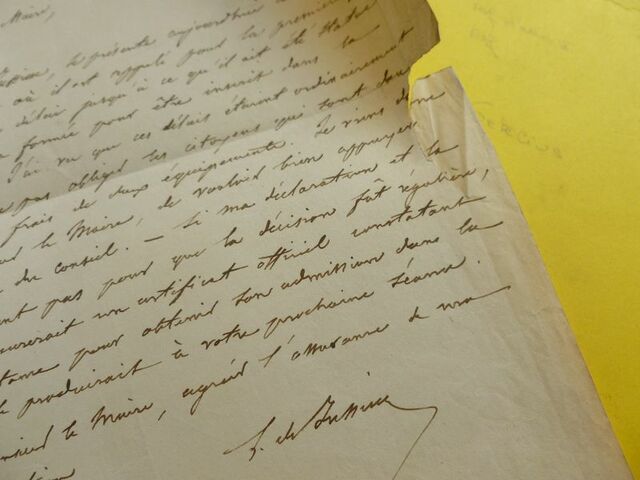 Maire,
présente aujourd'hui
où il est appelé pour la première
délai jusqu'à ce qu'il ait été statué
formée pour être inscrit dans la
J'ai vu que ces délais étaient ordinairement
pas obligé les citoyens qui sont dans
frais de deux équipements. Je viens donc
le Maire, de vouloir bien appuyer
du conseil. — Si ma déclaration et la
pas pour que la décision fût régulière,
un certificat officiel constatant
pour obtenir son admission dans la
produirait à votre prochaine séance.
le Maire, agréer l'assurance de ma
de Jussieu